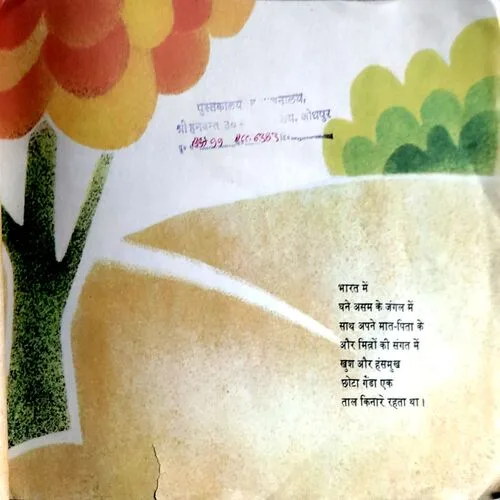 पुस्तकालय
श्री हनवन्त उ० जोधपुर
भारत में
घने असम के जंगल में
साथ अपने मात-पिता के
और मित्रों की संगत में
खुश और हंसमुख
छोटा गेंडा एक
ताल किनारे रहता था।